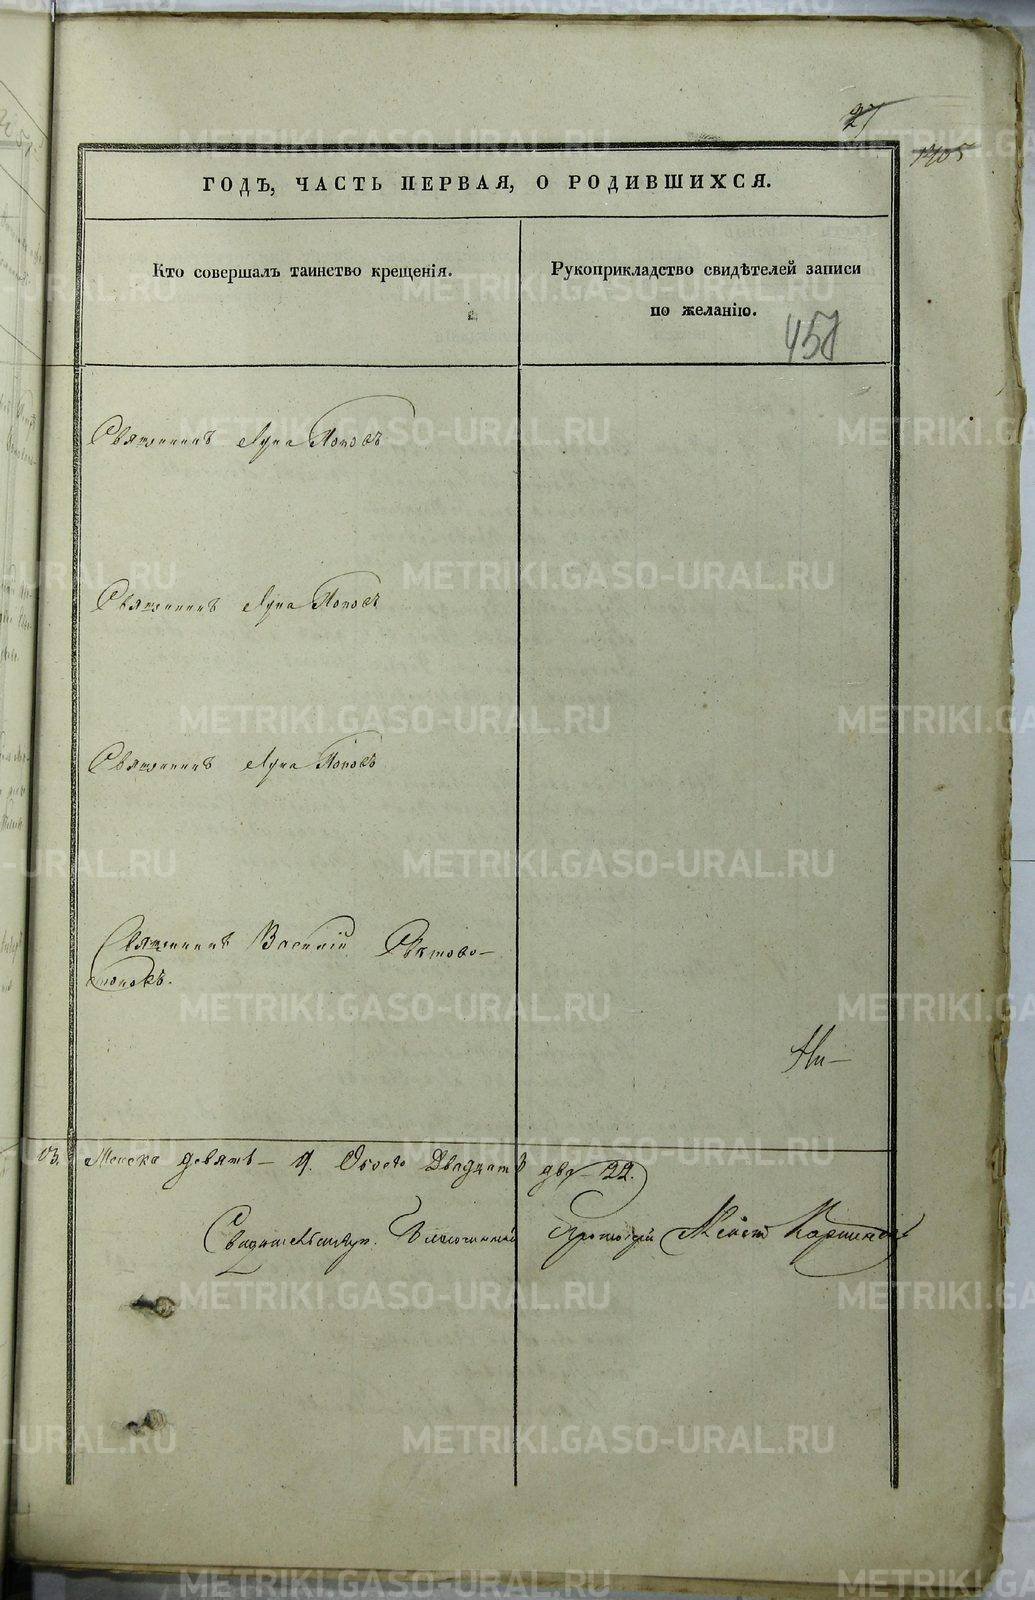 27
1705
ГОДЪ, ЧАСТЬ ПЕРВАЯ, О РОДИВШИХСЯ.
Кто совершалъ таинство крещенія.
Рукоприкладство свидѣтелей записи
по желанію.
457
Священникъ Лука Поповъ
Священникъ Лука Поповъ
Священникъ Лука Поповъ
Священникъ Василій Свѣтово-
стоковъ.
Ни-
Женска девять – 9. Обоего Двадцать два – 22.
Свидѣтельствую. Благочинный Протоіерей
METRIKI.GASO-URAL.RU